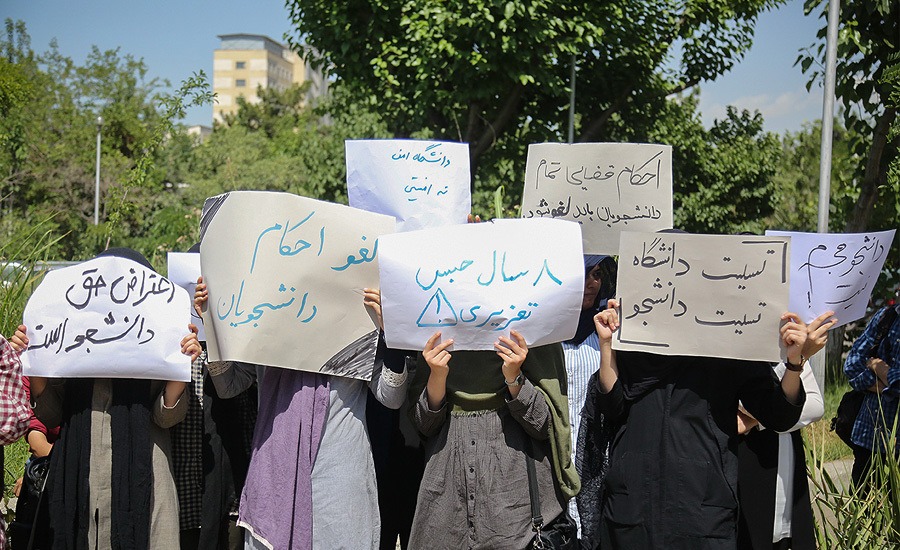 احکام قضایی تمام
دانشجویان باید لغو شود
دانشگاه امن
نه امنیتی
دانشجو مجرم
نیست
تسلیت دانشگاه
تسلیت دانشجو
۸ سال حبس
تعزیری !
لغو احکام
دانشجویان
اعتراض حق
دانشجو است